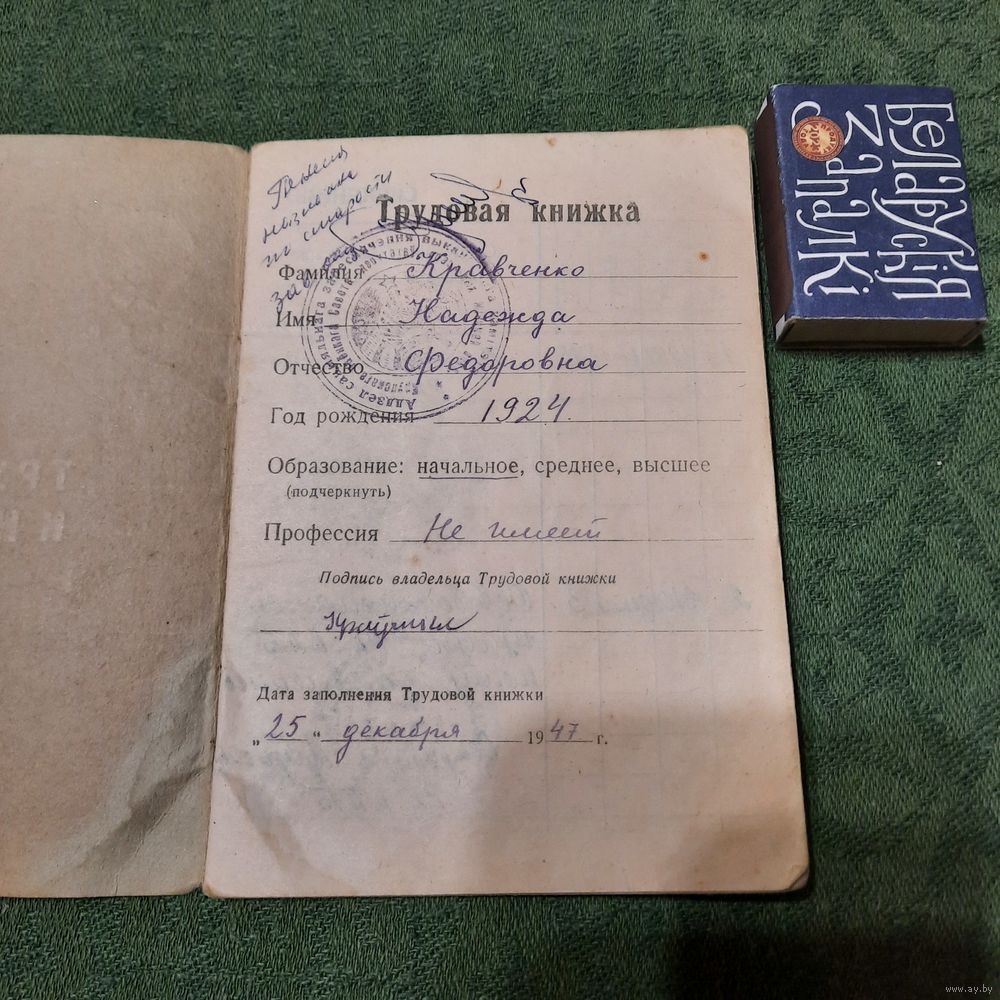 Пенсия
по старости
Трудовая книжка
Фамилия Кравченко
Имя Надежда
Отчество Федоровна
Год рождения 1924
Образование: начальное, среднее, высшее
(подчеркнуть)
Профессия Не имеет
Подпись владельца Трудовой книжки
Дата заполнения Трудовой книжки
„25“ декабря 1947 г.
Аддзел сацыяльнага забеспячэння
БЕЛАРУСКІЯ
ЗАПАЛКІ
www.ay.by